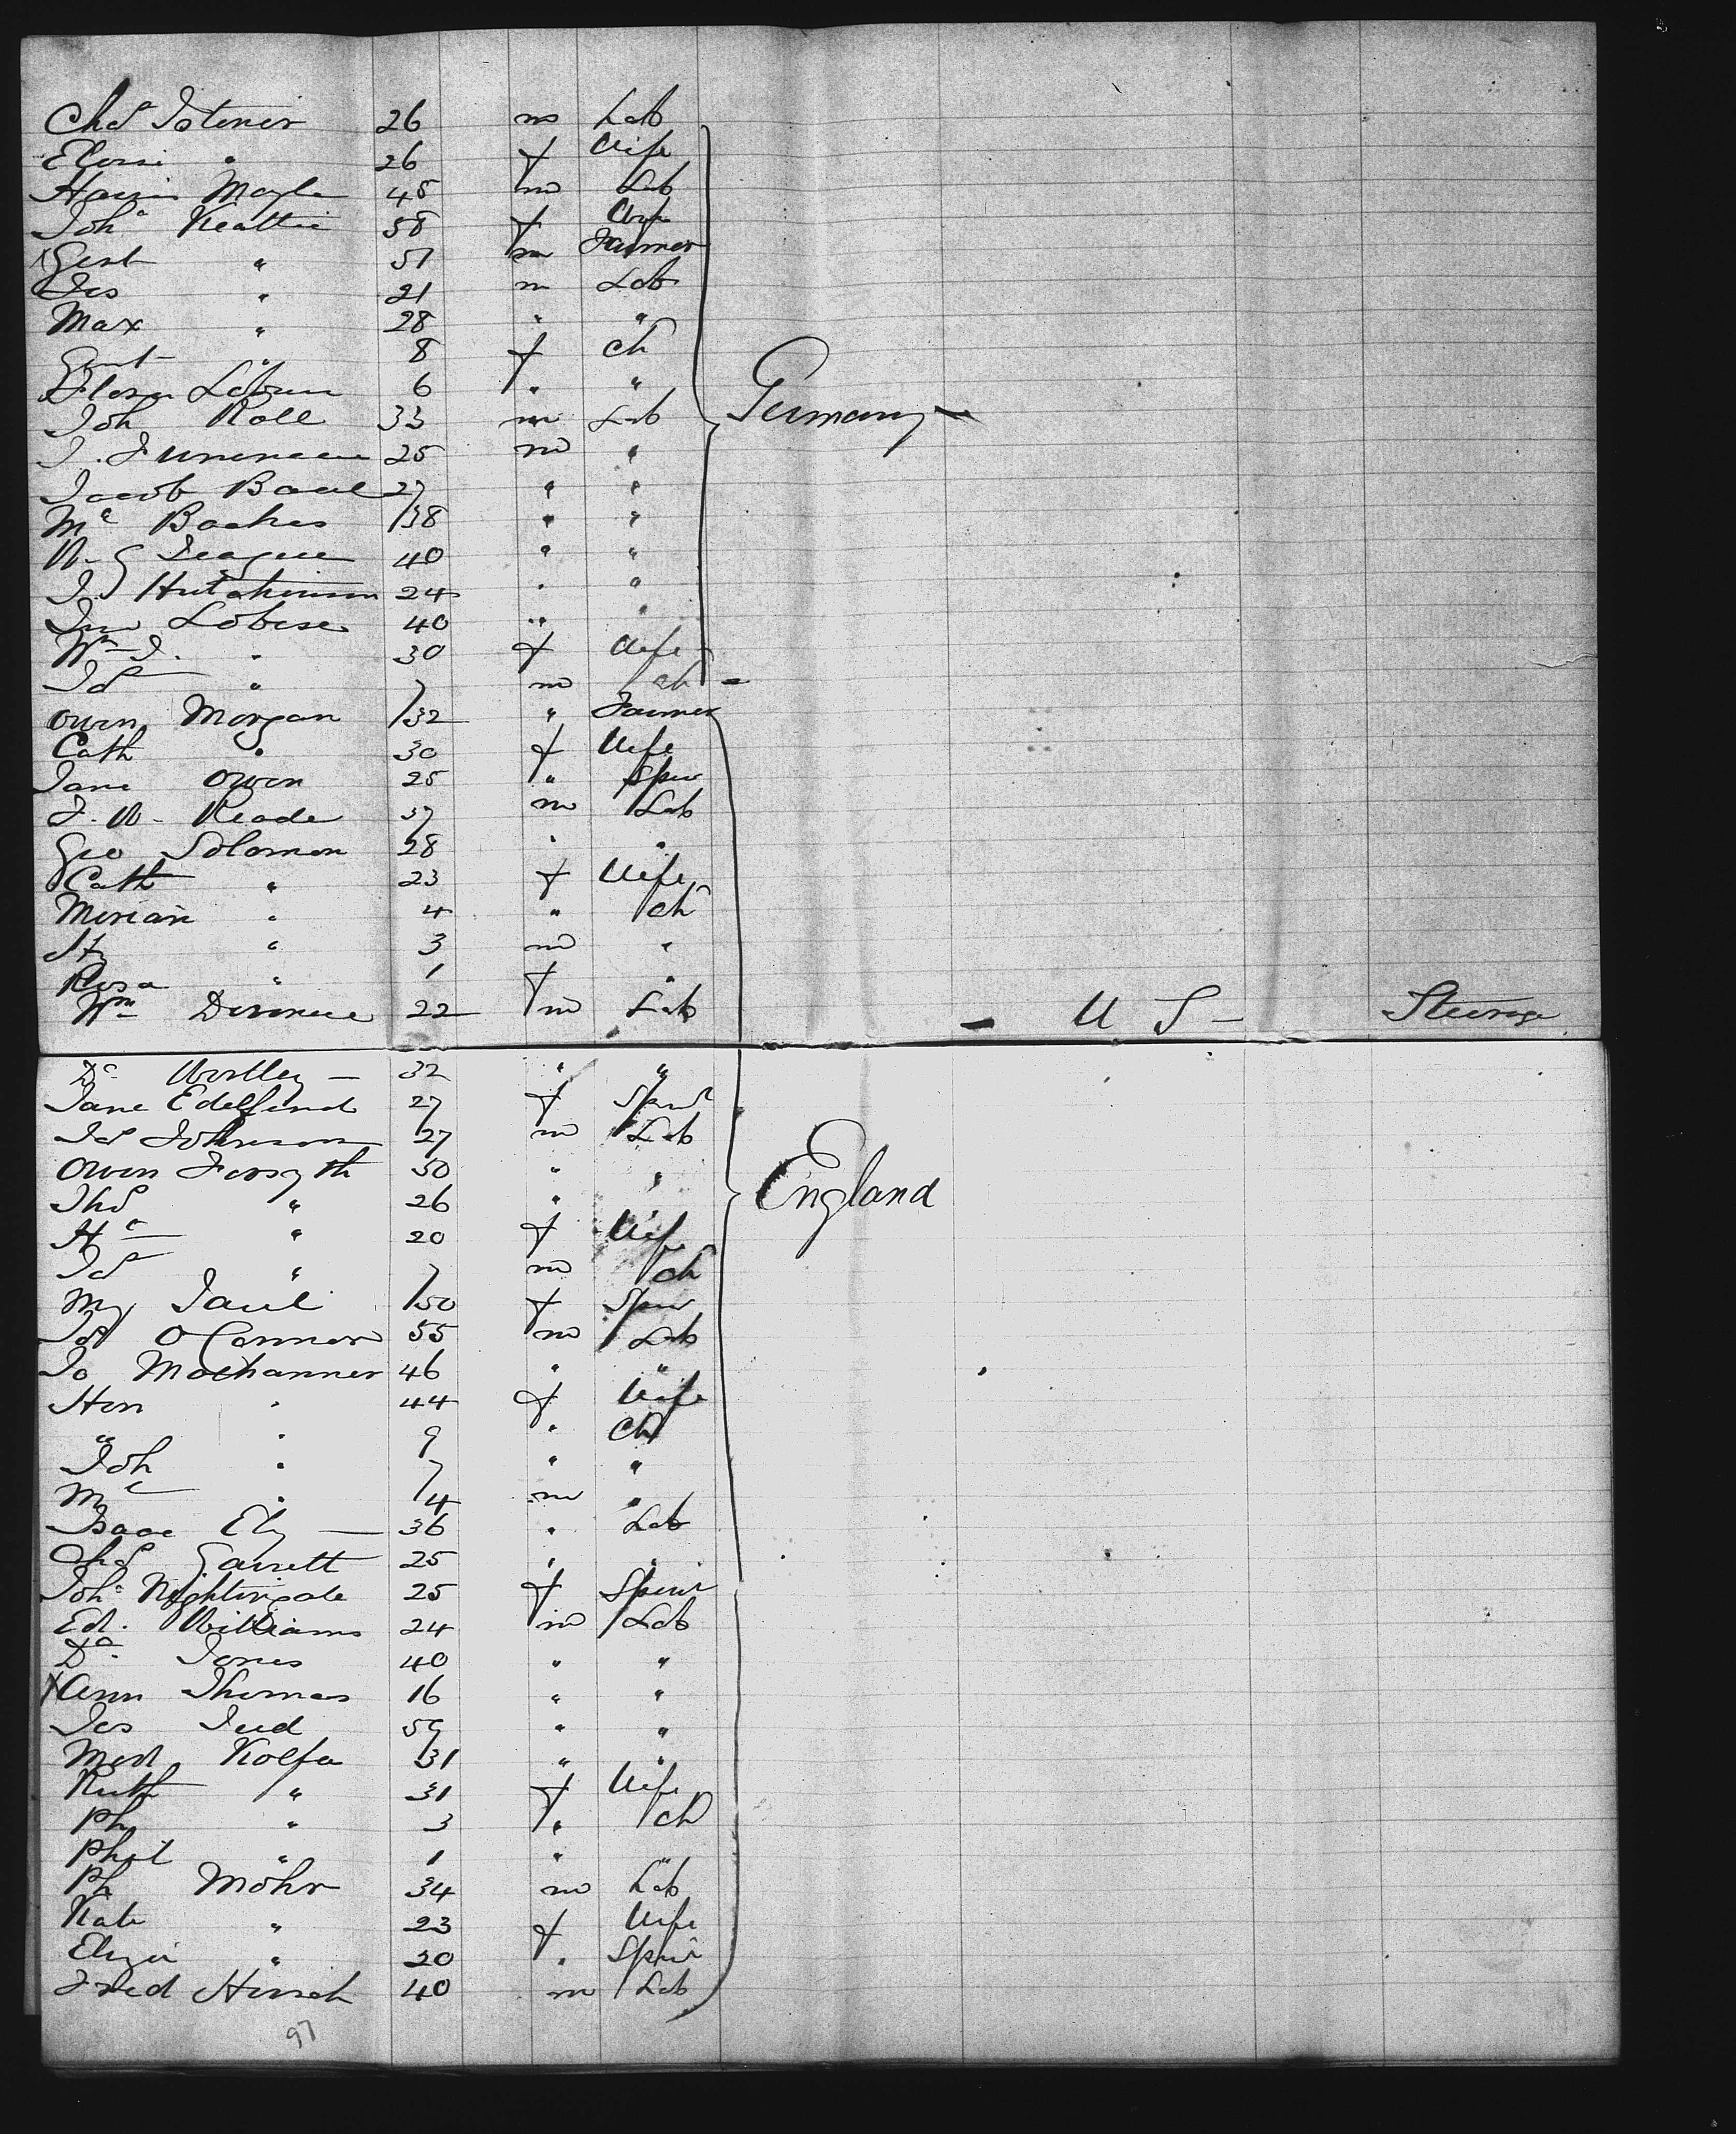 Chs Isterier 26 m Lab
Eloisi " 26 f Wife
Harris Mayle 48 m Lab
Joha Keattie 58 f Wife
Gert " 51 m Farmer
Jes " 21 m Lab
Max " 28 " "
Gert " 8 f ch
Flora 6 " "
Joh Rall 33 m Lab
J. 25 m "
Jacob Baul 27 " "
Mc Baches 38 " "
W. G Teague 40 " "
J. J Hutchinson 24 " "
Jno Lobese 40 " "
Wm J. " 30 f Wife
Js " 7 m ch
Owen Morgan 32 " Farmer
Cath " 30 f Wife
Jane Owen 25 " Spin
J. W. Reade 37 m Lab
Geo Solomon 28 " "
Cath " 23 f Wife
Miriam " 4 " ch
Hy " 3 m "
Rosa " 1 f "
Wm 22 m Lab
Germany
U S Steerage
Da Wortley 32 " "
Jane Edelfind 27 f Spins
Js Johnson 27 m Lab
Owen Forsyth 50 " "
Ths " 26 " "
Ha " 20 f Wife
Js " 7 m ch
My Paul 50 f Spin
Js O Connor 55 m Lab
Jo Mochanner 46 " "
Hen " 44 f Wife
" " 9 " Ch
Joh " 7 " "
Mc " 4 m "
Isaac Ely 36 " Lab
Chs Garrett 25 " "
Joha Nightingale 25 f Spins
Ed. Williams 24 m Lab
Da Jones 40 " "
X Ann Thomas 16 " "
Jes Jud 59 " "
Med Kolfa 31 " "
Ruth " 31 f Wife
Ph " 3 " ch
Phil " 1 " "
Ph Mohr 34 m Lab
Kate " 23 f Wife
Eliza " 20 " Spins
Fred Hirsch 40 m Lab
England
97